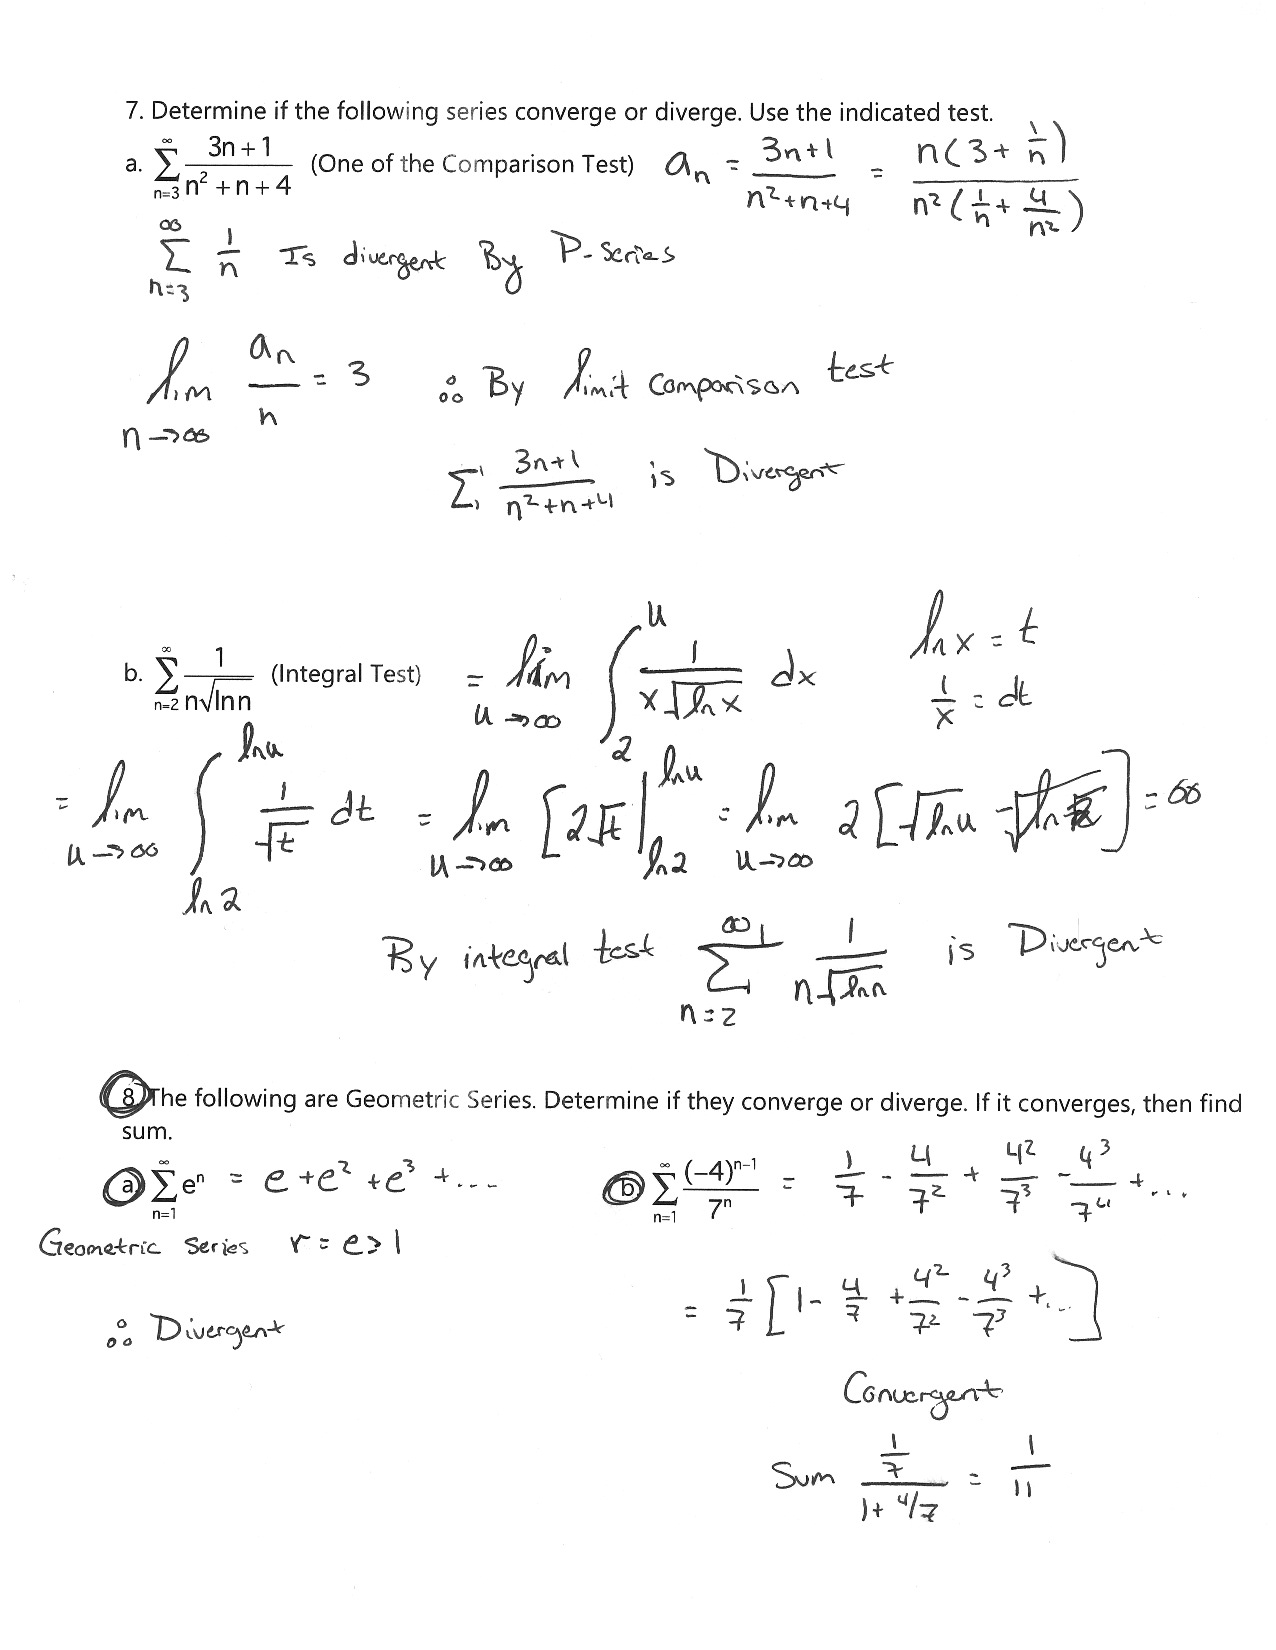 7. Determine if the following series converge or diverge. Use the indicated test.
a. ∑_{n=3}^{∞} (3n+1)/(n²+n+4) (One of the Comparison Test) a_n = (3n+1)/(n²+n+4) = n(3+1/n)/(n²(1/n+4/n²))
∑_{n=3}^{∞} 1/n Is divergent By P-series
lim_{n→∞} a_n/n = 3 ∴ By limit comparison test
∑ (3n+1)/(n²+n+4) is Divergent
b. ∑_{n=2}^{∞} 1/(n√ln n) (Integral Test) = lim_{u→∞} ∫_2^u 1/(x√ln x) dx ln x = t
1/x = dt
= lim_{u→∞} ∫_{ln 2}^{ln u} 1/√t dt = lim_{u→∞} [2√t |_{ln 2}^{ln u} = lim_{u→∞} 2[√ln u - √ln 2] = ∞
By integral test ∑_{n=2}^{∞} 1/(n√ln n) is Divergent
8. The following are Geometric Series. Determine if they converge or diverge. If it converges, then find
sum.
a) ∑_{n=1}^{∞} eⁿ = e + e² + e³ + ....
Geometric series r = e > 1
∴ Divergent
b) ∑_{n=1}^{∞} (-4)^{n-1}/7ⁿ = 1/7 - 4/7² + 4²/7³ - 4³/7⁴ + ....
= 1/7 [1 - 4/7 + 4²/7² - 4³/7³ + ...]
Convergent
Sum (1/7)/(1+4/7) = 1/11